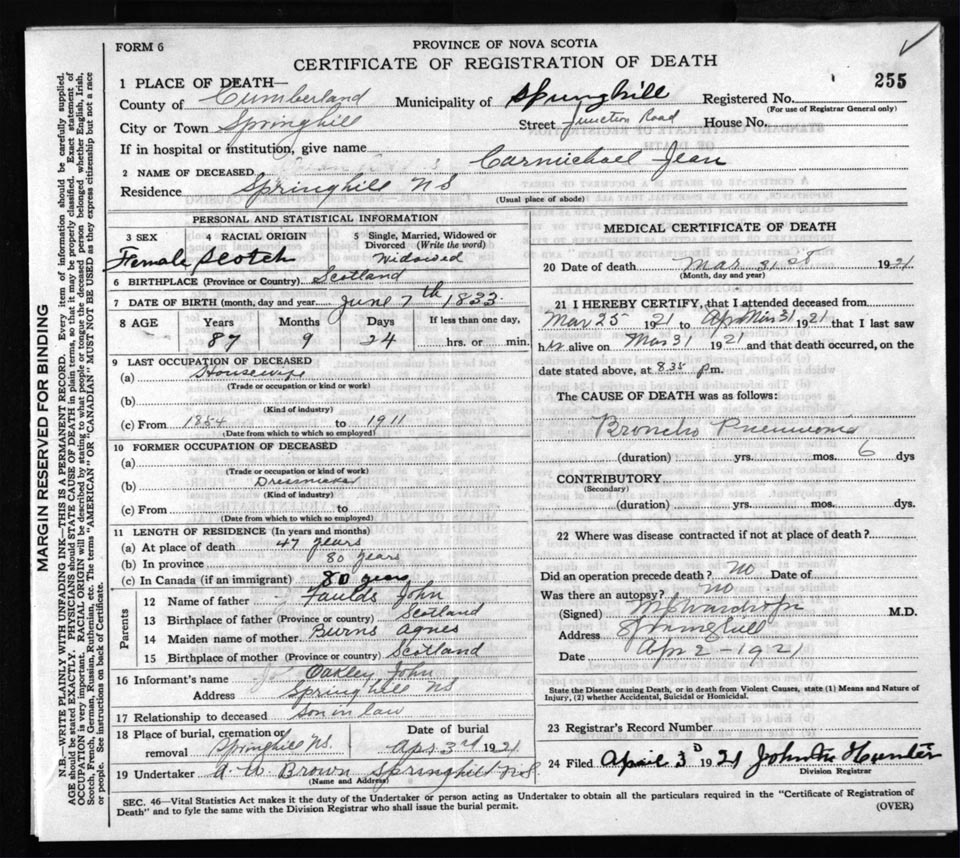 FORM 6
PROVINCE OF NOVA SCOTIA
CERTIFICATE OF REGISTRATION OF DEATH
255
1 PLACE OF DEATH—
County of Cumberland Municipality of Springhill Registered No.
(For use of Registrar General only)
City or Town Springhill Street Junction Road House No.
If in hospital or institution, give name
2 NAME OF DECEASED Carmichael Jean
Residence Springhill NS
(Usual place of abode)
PERSONAL AND STATISTICAL INFORMATION
3 SEX 4 RACIAL ORIGIN 5 Single, Married, Widowed or Divorced (Write the word)
Female Scotch Widowed
6 BIRTHPLACE (Province or Country) Scotland
7 DATE OF BIRTH (month, day and year) June 7th 1833
8 AGE Years Months Days If less than one day,
87 9 24 hrs. or min.
9 LAST OCCUPATION OF DECEASED
(a) Housewife
(Trade or occupation or kind of work)
(b)
(Kind of industry)
(c) From 1854 to 1911
(Date from which to which so employed)
10 FORMER OCCUPATION OF DECEASED
(a)
(Trade or occupation or kind of work)
(b) Dressmaker
(Kind of industry)
(c) From to
(Date from which to which so employed)
11 LENGTH OF RESIDENCE (In years and months)
(a) At place of death 47 years
(b) In province 80 years
(c) In Canada (if an immigrant) 80 years
Parents
12 Name of father Faulds John
13 Birthplace of father (Province or country) Scotland
14 Maiden name of mother Burns Agnes
15 Birthplace of mother (Province or country) Scotland
16 Informant's name Oakley John
Address Springhill NS
17 Relationship to deceased Son in law
18 Place of burial, cremation or removal Springhill NS. Date of burial Apr 3rd 1921
19 Undertaker A. W. Brown Springhill NS
(Name and Address)
MEDICAL CERTIFICATE OF DEATH
20 Date of death Mar 31 1921
(Month, day and year)
21 I HEREBY CERTIFY, that I attended deceased from
Mar 25 1921 to Mar 31 1921 that I last saw
her alive on Mar 31 1921 and that death occurred, on the
date stated above, at 8.35 pm.
The CAUSE OF DEATH was as follows:
Broncho Pneumonia
(duration) yrs. mos. 6 dys
CONTRIBUTORY
(Secondary)
(duration) yrs. mos. dys.
22 Where was disease contracted if not at place of death?
Did an operation precede death? no Date of
Was there an autopsy? no
(Signed) M.D.
Address Springhill
Date Apr 2 - 1921
State the Disease causing Death, or in death from Violent Causes, state (1) Means and Nature of
Injury, (2) whether Accidental, Suicidal or Homicidal.
23 Registrar's Record Number
24 Filed April 3D 1921 John Hunter
Division Registrar
SEC. 46—Vital Statistics Act makes it the duty of the Undertaker or person acting as Undertaker to obtain all the particulars required in the "Certificate of Registration of
Death" and to fyle the same with the Division Registrar who shall issue the burial permit.
(OVER)
MARGIN RESERVED FOR BINDING
N.B.—WRITE PLAINLY WITH UNFADING INK—THIS IS A PERMANENT RECORD. Every item of information should be carefully supplied.
AGE should be stated EXACTLY. PHYSICIANS should STATE CAUSE OF DEATH in plain terms, so that it may be properly classified. Exact statement of
OCCUPATION is very important. RACIAL ORIGIN will be described by stating to what people or tongue the deceased person belonged whether English, Irish,
Scotch, French, German, Russian, Ruthenian, etc. The terms "AMERICAN" OR "CANADIAN" MUST NOT BE USED as they express citizenship but not a race
or people. See instructions on back of Certificate.